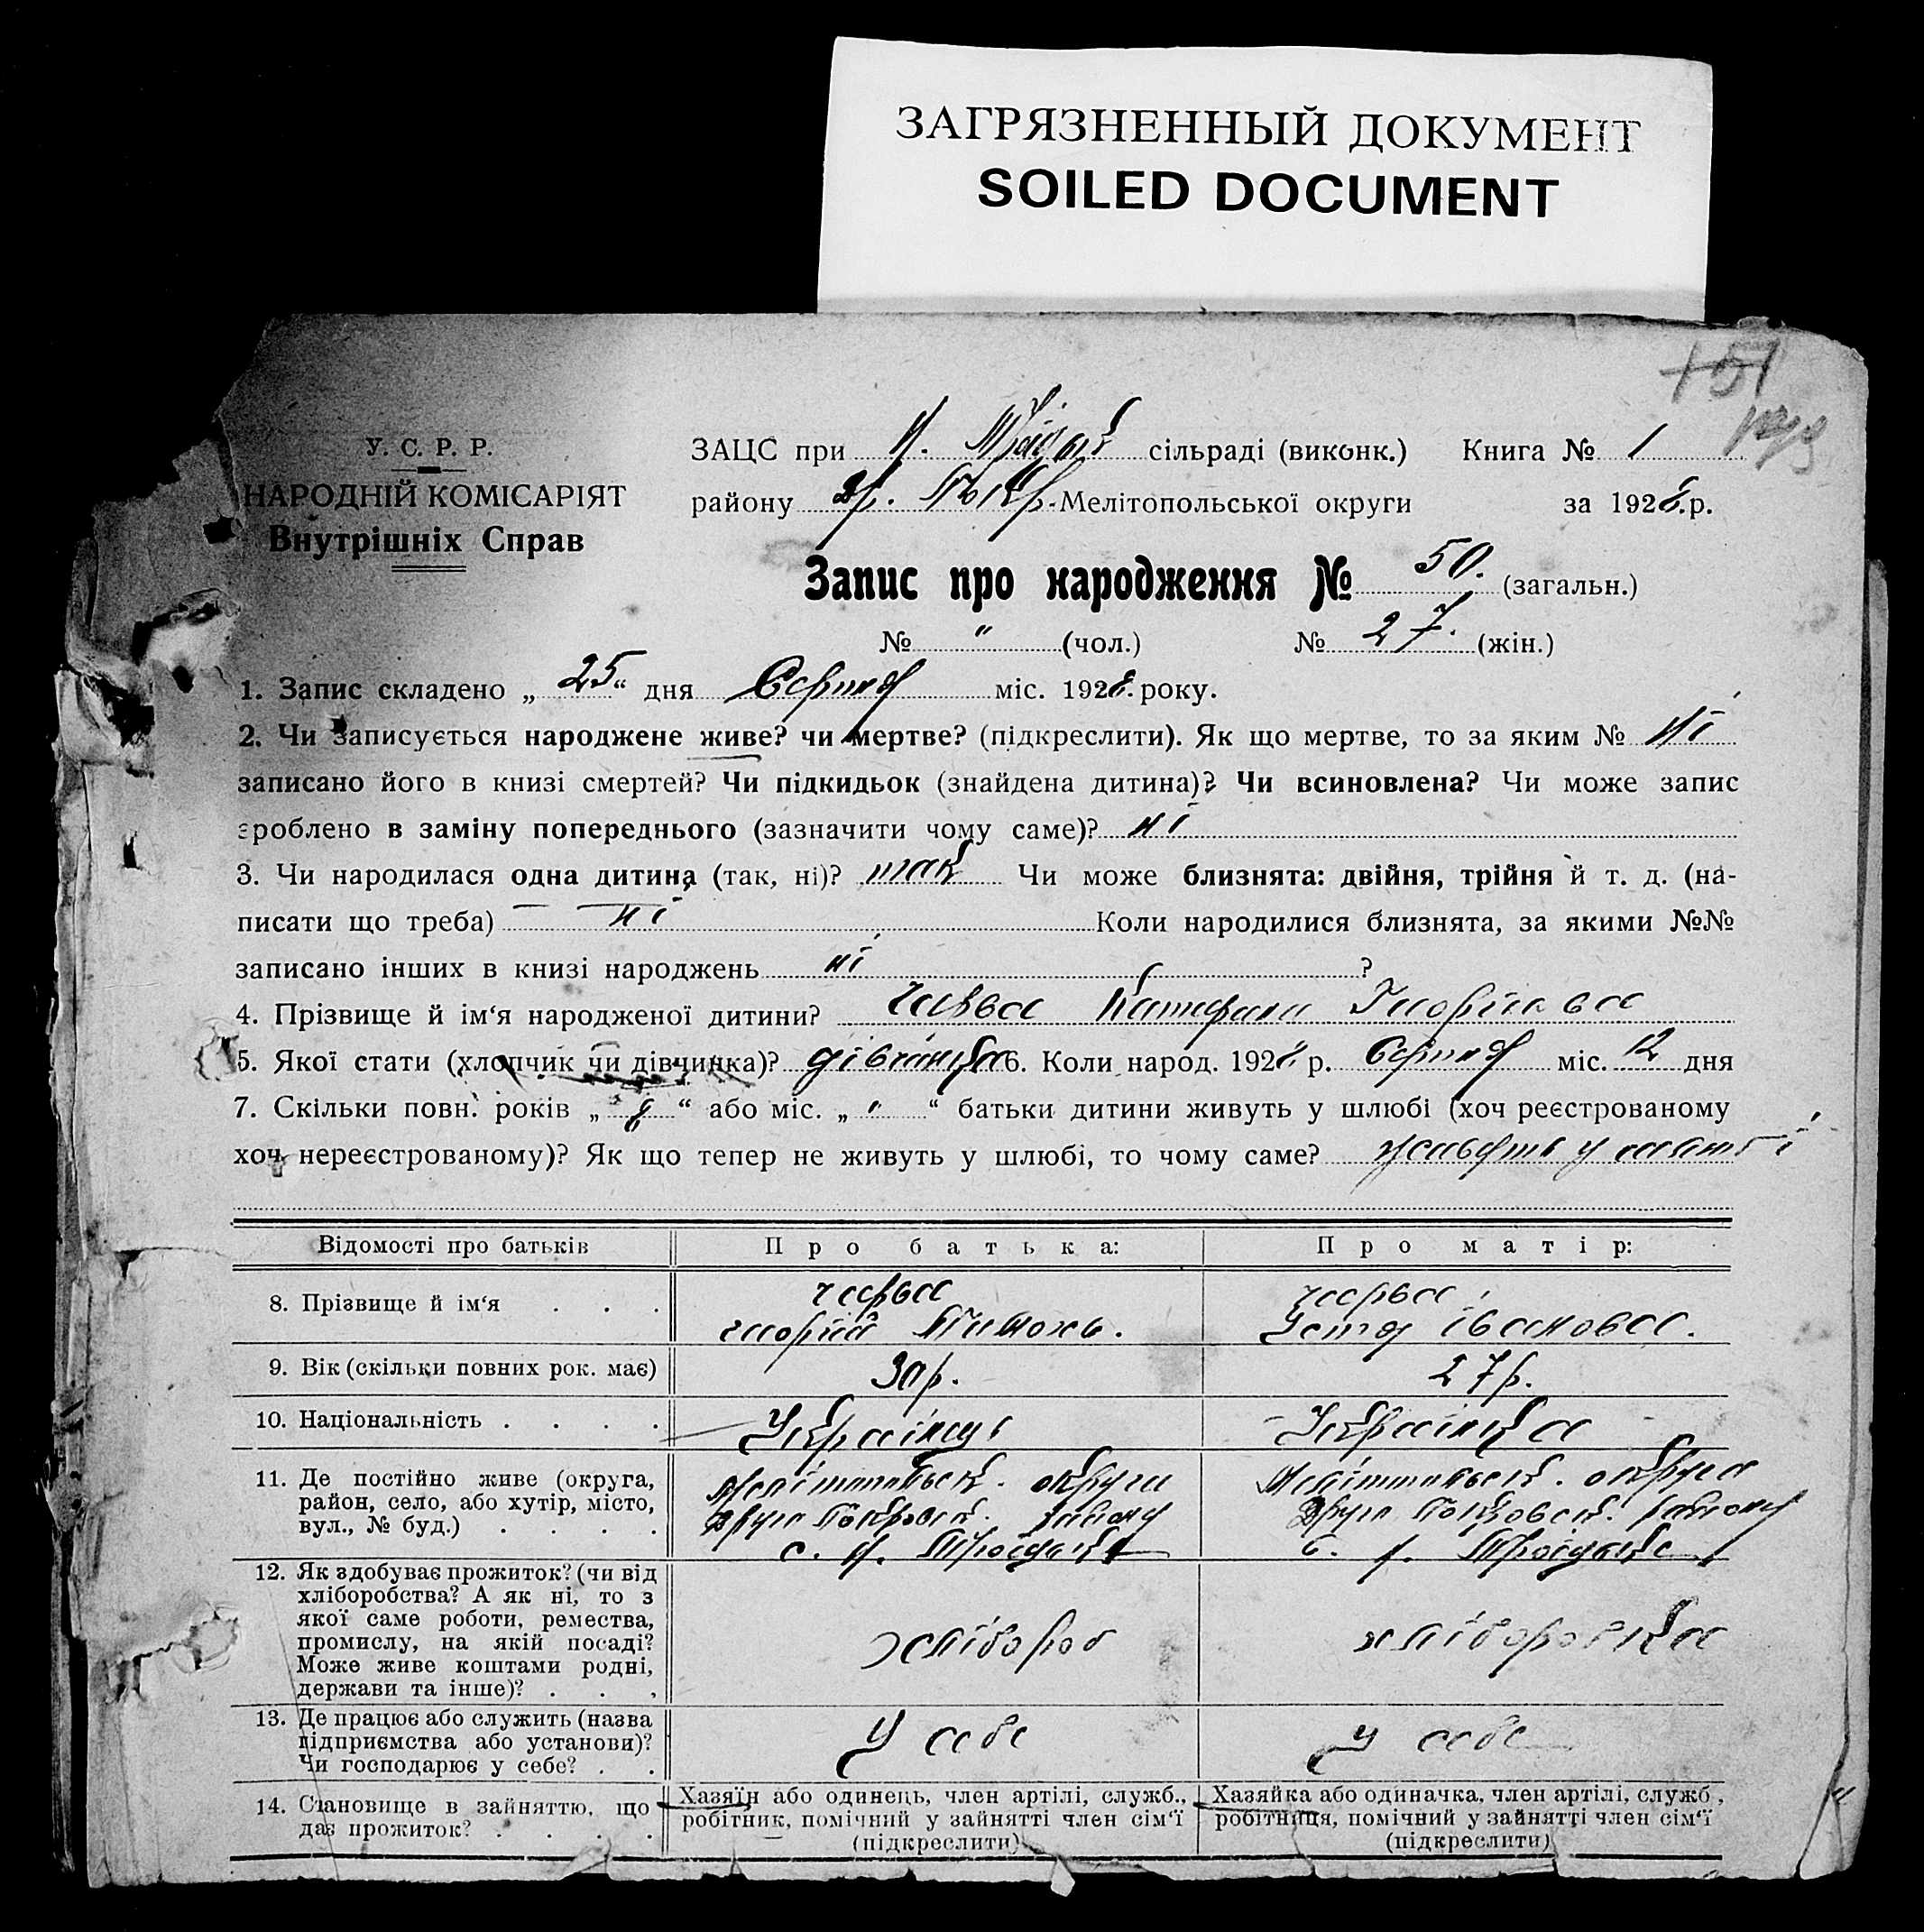 ЗАГРЯЗНЕННЫЙ ДОКУМЕНТ
SOILED DOCUMENT
У. С. Р. Р.
НАРОДНІЙ КОМІСАРІЯТ
Внутрішніх Справ
ЗАЦС при Н. сільраді (виконк.) Книга № 1
району Др. Покр. Мелітопольської округи за 1928 р.
Запис про народження № 50. (загальн.)
№ " (чол.) № 27. (жін.)
1. Запис складено „ 25 “ дня Серпня міс. 1928. року.
2. Чи записується народжене живе? чи мертве? (підкреслити). Як що мертве, то за яким № ні
записано його в книзі смертей? Чи підкидьок (знайдена дитина)? Чи всиновлена? Чи може запис
зроблено в заміну попереднього (зазначити чому саме)? ні
3. Чи народилася одна дитина (так, ні)? так Чи може близнята: двійня, трійня й т. д. (на-
писати що треба) ні Коли народилися близнята, за якими №№
записано інших в книзі народжень ні ?
4. Прізвище й ім‘я народженої дитини?
5. Якої стати (хлопчик чи дівчинка)? дівчинка 6. Коли народ. 1928 р. Серпня міс. 12 дня
7. Скільки повн. років „ “ або міс. „ " “ батьки дитини живуть у шлюбі (хоч реєстрованому
хоч нереєстрованому)? Як що тепер не живуть у шлюбі, то чому саме? живуть у
Відомості про батьків Про батька: Про матір:
8. Прізвище й ім‘я . . .
Устя Івановва.
9. Вік (скільки повних рок. має) 30 р. 27 р.
10. Національність . . . . Українець Українка
11. Де постійно живе (округа, Мелітопольск. округи Мелітопольск. округа
район, село, або хутір, місто, Друго Покровск. району Друго Покровск. району
вул., № буд.) . . . . с. Н. Троїцьке с. Н. Троїцьке
12. Як здобуває прожиток? (чи від
хліборобства? А як ні, то з
якої саме роботи, ремества,
промислу, на якій посаді? хлібороб хліборобка
Може живе коштами родні,
держави та інше)? . . .
13. Де працює або служить (назва
підприємства або установи)? у себе у себе
Чи господарює у себе? . .
14. Становище в зайняттю, що Хазяїн або одинець, член артілі, служб., Хазяйка або одиначка, член артілі, служб.,
дає прожиток? . . . . робітник, помічний у зайнятті член сім‘ї робітниця, помічний у зайнятті член сім‘ї
(підкреслити) (підкреслити)